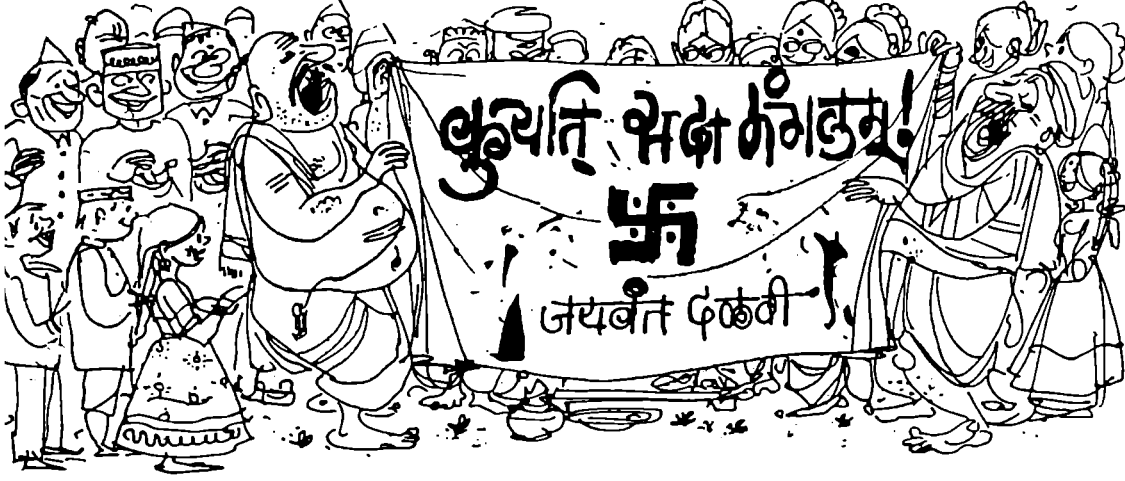 कुर्यात् सदा मंगलम्!
जयवंत दळवी